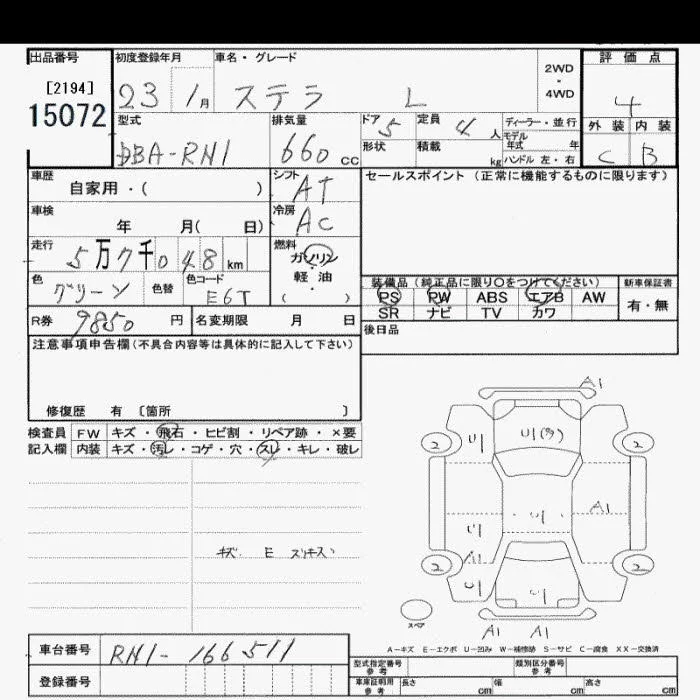 出品番号 初度登録年月 車名・グレード 評価点
[2194] 23 1月 ステラ L 2WD・4WD 4
15072
型式 排気量 ドア 定員 ディーラー・並行 外装 内装
DBA-RN1 660 cc 5 4人 モデル年式 年 C B
形状 積載 kg ハンドル 左・右
車歴 シフト セールスポイント (正常に機能するものに限ります)
自家用・( ) AT
車検 冷房
年 月( 日) AC
走行 燃料
5万7千048km ガソリン
色 色替 色コード 軽・油 装備品 (純正品に限り〇をつけてください) 新車保証書
グリーン E6T ( ) PS PW ABS エアB AW 有・無
SR ナビ TV カワ
R券 9850円 名変期限 月 日 後日品
注意事項申告欄 (不具合内容等は具体的に記入して下さい)
修復歴 有 〔箇所 〕
検査員 FW キズ・飛石・ヒビ割・リペア跡・×要
記入欄 内装 キズ・汚レ・コゲ・穴・スレ・キレ・破レ
A1
2 U1 U1(多) 2
U1 U1 A1
キズ. E スリキズ
2 A1 2
U1 U1
スペア A1 A1
A-キズ E-エクボ U-凹み W-補修跡 S-サビ C-腐食 XX-交換済
車台番号 RN1-166511 型式指定番号 参考 類別区分番号 参考
登録番号 車庫証明用 参考 長さ cm 幅 cm 高さ cm